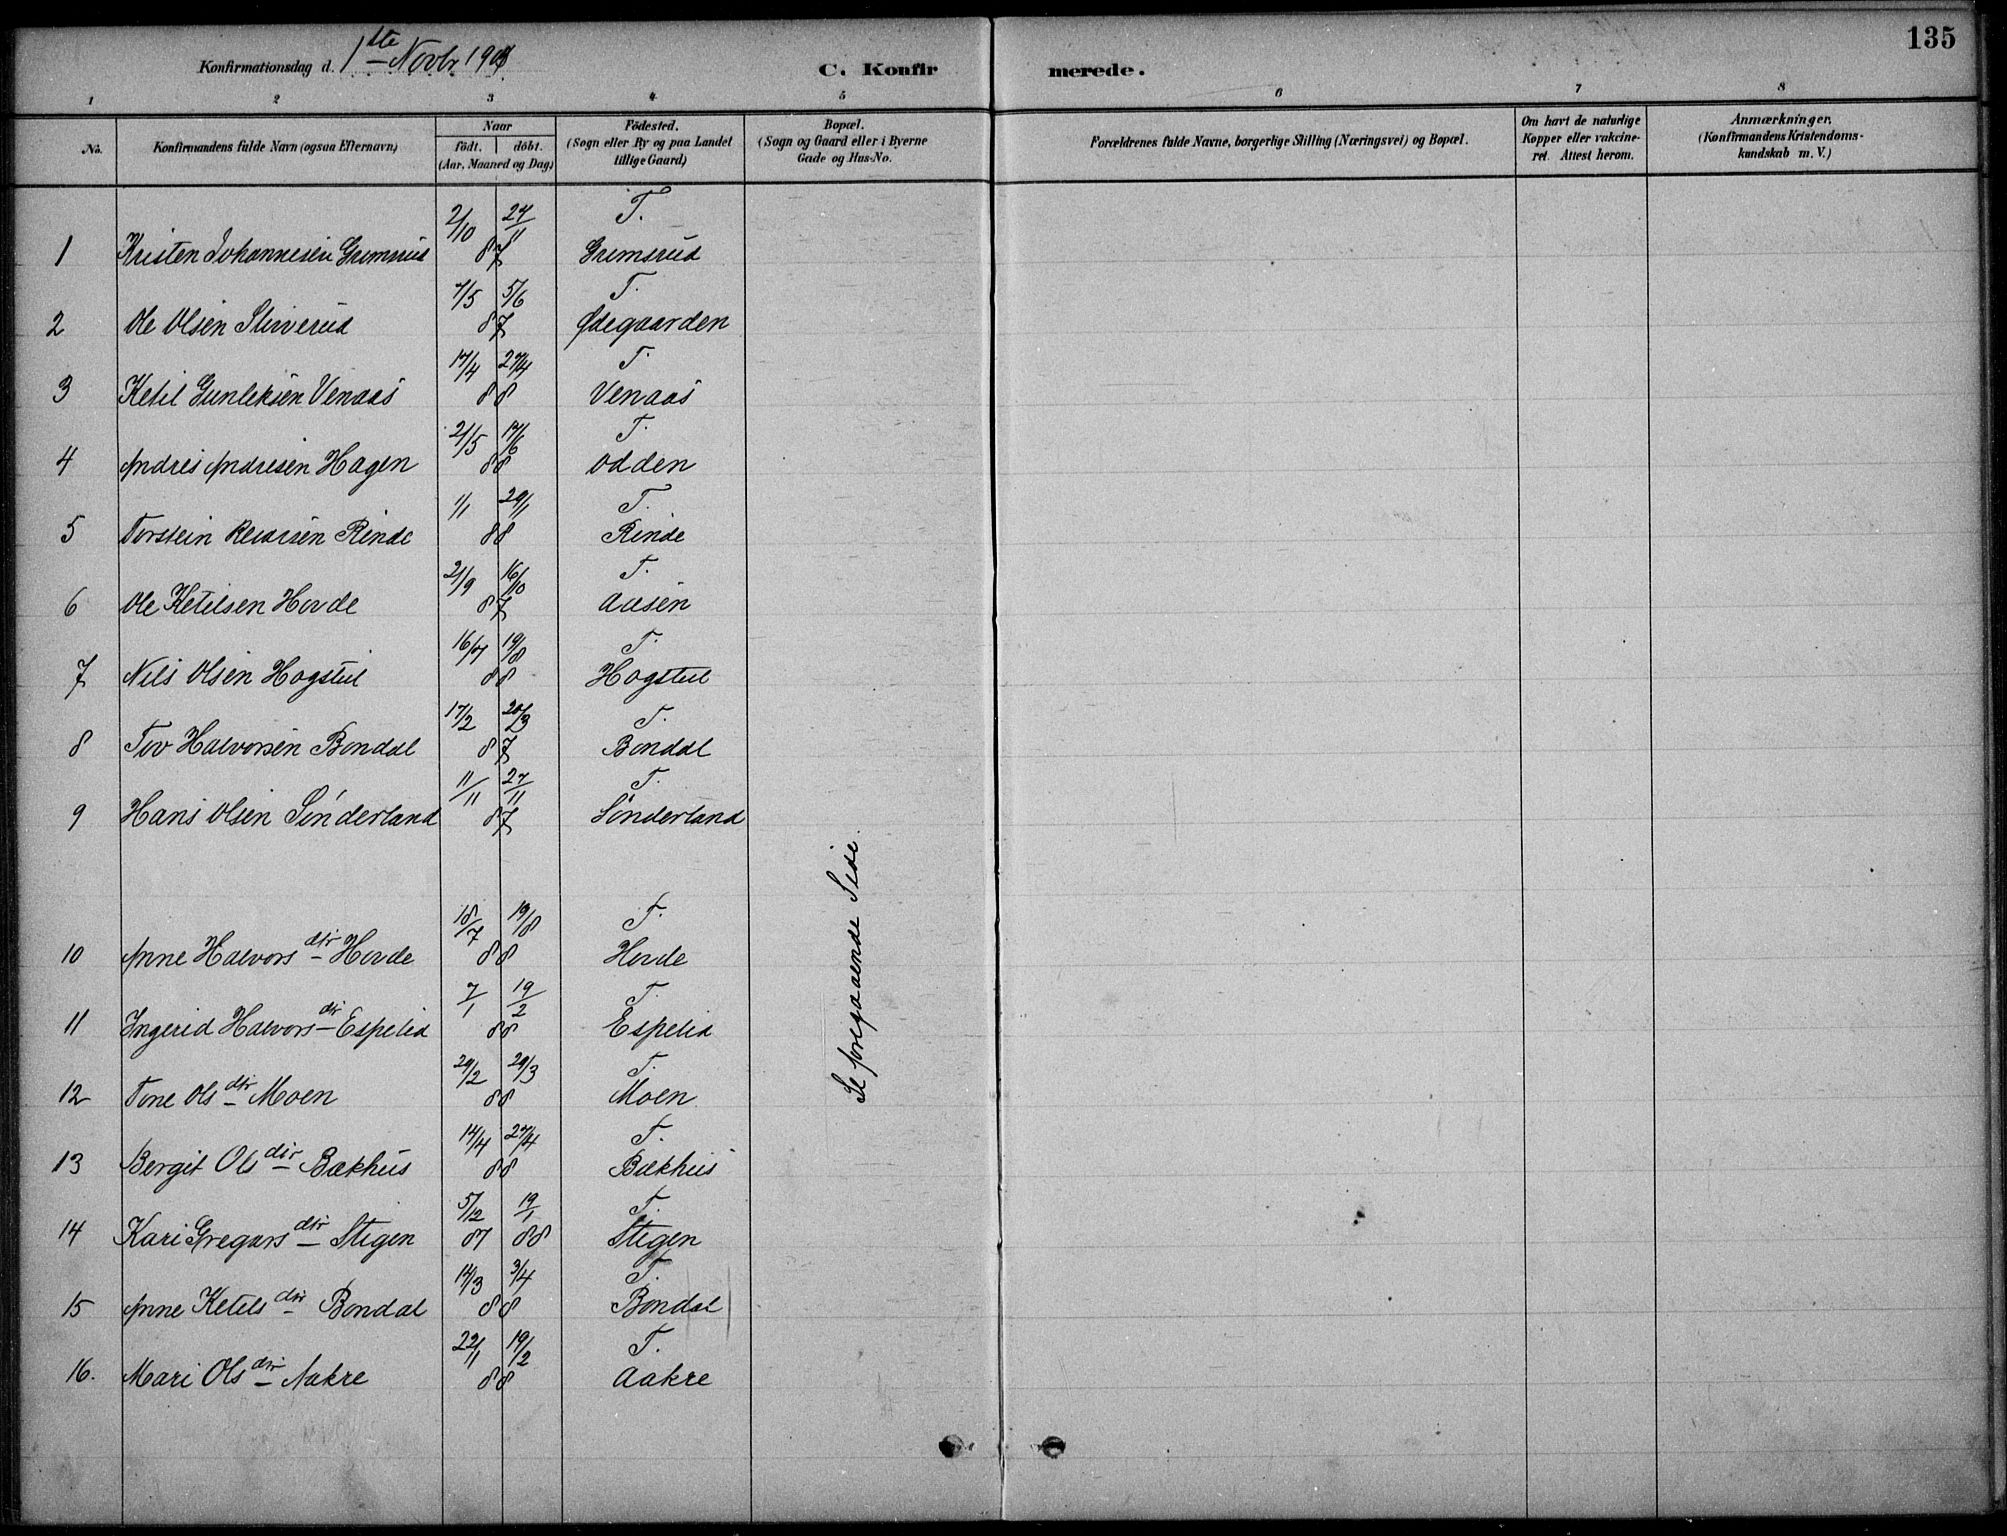 135
Konfirmationsdag d. 1ste Novbr. 190
C. Konfirmerede.
1 2 3 4 5 6 7 8
No.
Konfirmandens fulde Navn (ogsaa Efternavn)
Naar
født. døbt.
(Aar, Maaned og Dag)
Fødested.
(Sogn eller By og paa Landet
tillige Gaard)
Bopæl.
(Sogn og Gaard eller i Byerne
Gade og Hus-No.
Forældrenes fulde Navne, borgerlige Stilling (Næringsvei) og Bopæl.
Om havt de naturlige
Kopper eller vakcine-
ret. Attest herom.
Anmærkninger.
(Konfirmandens Kristendoms-
kundskab m. V.)
2/10 27/11 T.
1 Kristen Johannesen Grimsrud 87 Grimsrud
7/5 5/6 T.
2 Ole Olsen Stivverud 87 Ødegaarden
17/4 27/4 T.
3 Ketil Gunleksen Venaas 88 Venaas
21/5 17/6 T.
4 Andres Andresen Hagen 88 Odden
1/1 29/1 T.
5 Torstein Rinde 88 Rinde
21/9 16/10 T.
6 Ole Ketilsen Hovde 87 Aasen
16/7 19/8 T.
7 Nils Olsen Hogstul 88 Hogstul
17/2 20/3 T.
8 Tov Halvorsen Bondal 87 Bondal
11/11 27/11 T.
9 Hans Olsen Sønderland 87 Sønderland
18/7 19/8 T.
10 Anne Halvorsdtr Hovde 88 Hovde
7/1 19/2 T.
11 Ingerid Halvorsdtr Espelid 88 Espelid
29/2 29/3 T.
12 Tone Olsdtr Moen 88 Moen
14/4 27/4 T.
13 Bergit Olsdtr Bækhus 88 Bækhus
5/12 19/1 T.
14 Kari Gregarsdtr Stigen 87 88 Stigen
14/3 3/4 T.
15 Anne Ketilsdtr Bondal 88 Bondal
22/1 19/2 T.
16. Mari Olsdtr Aakre 88 Aakre
Se foregaaende Side.